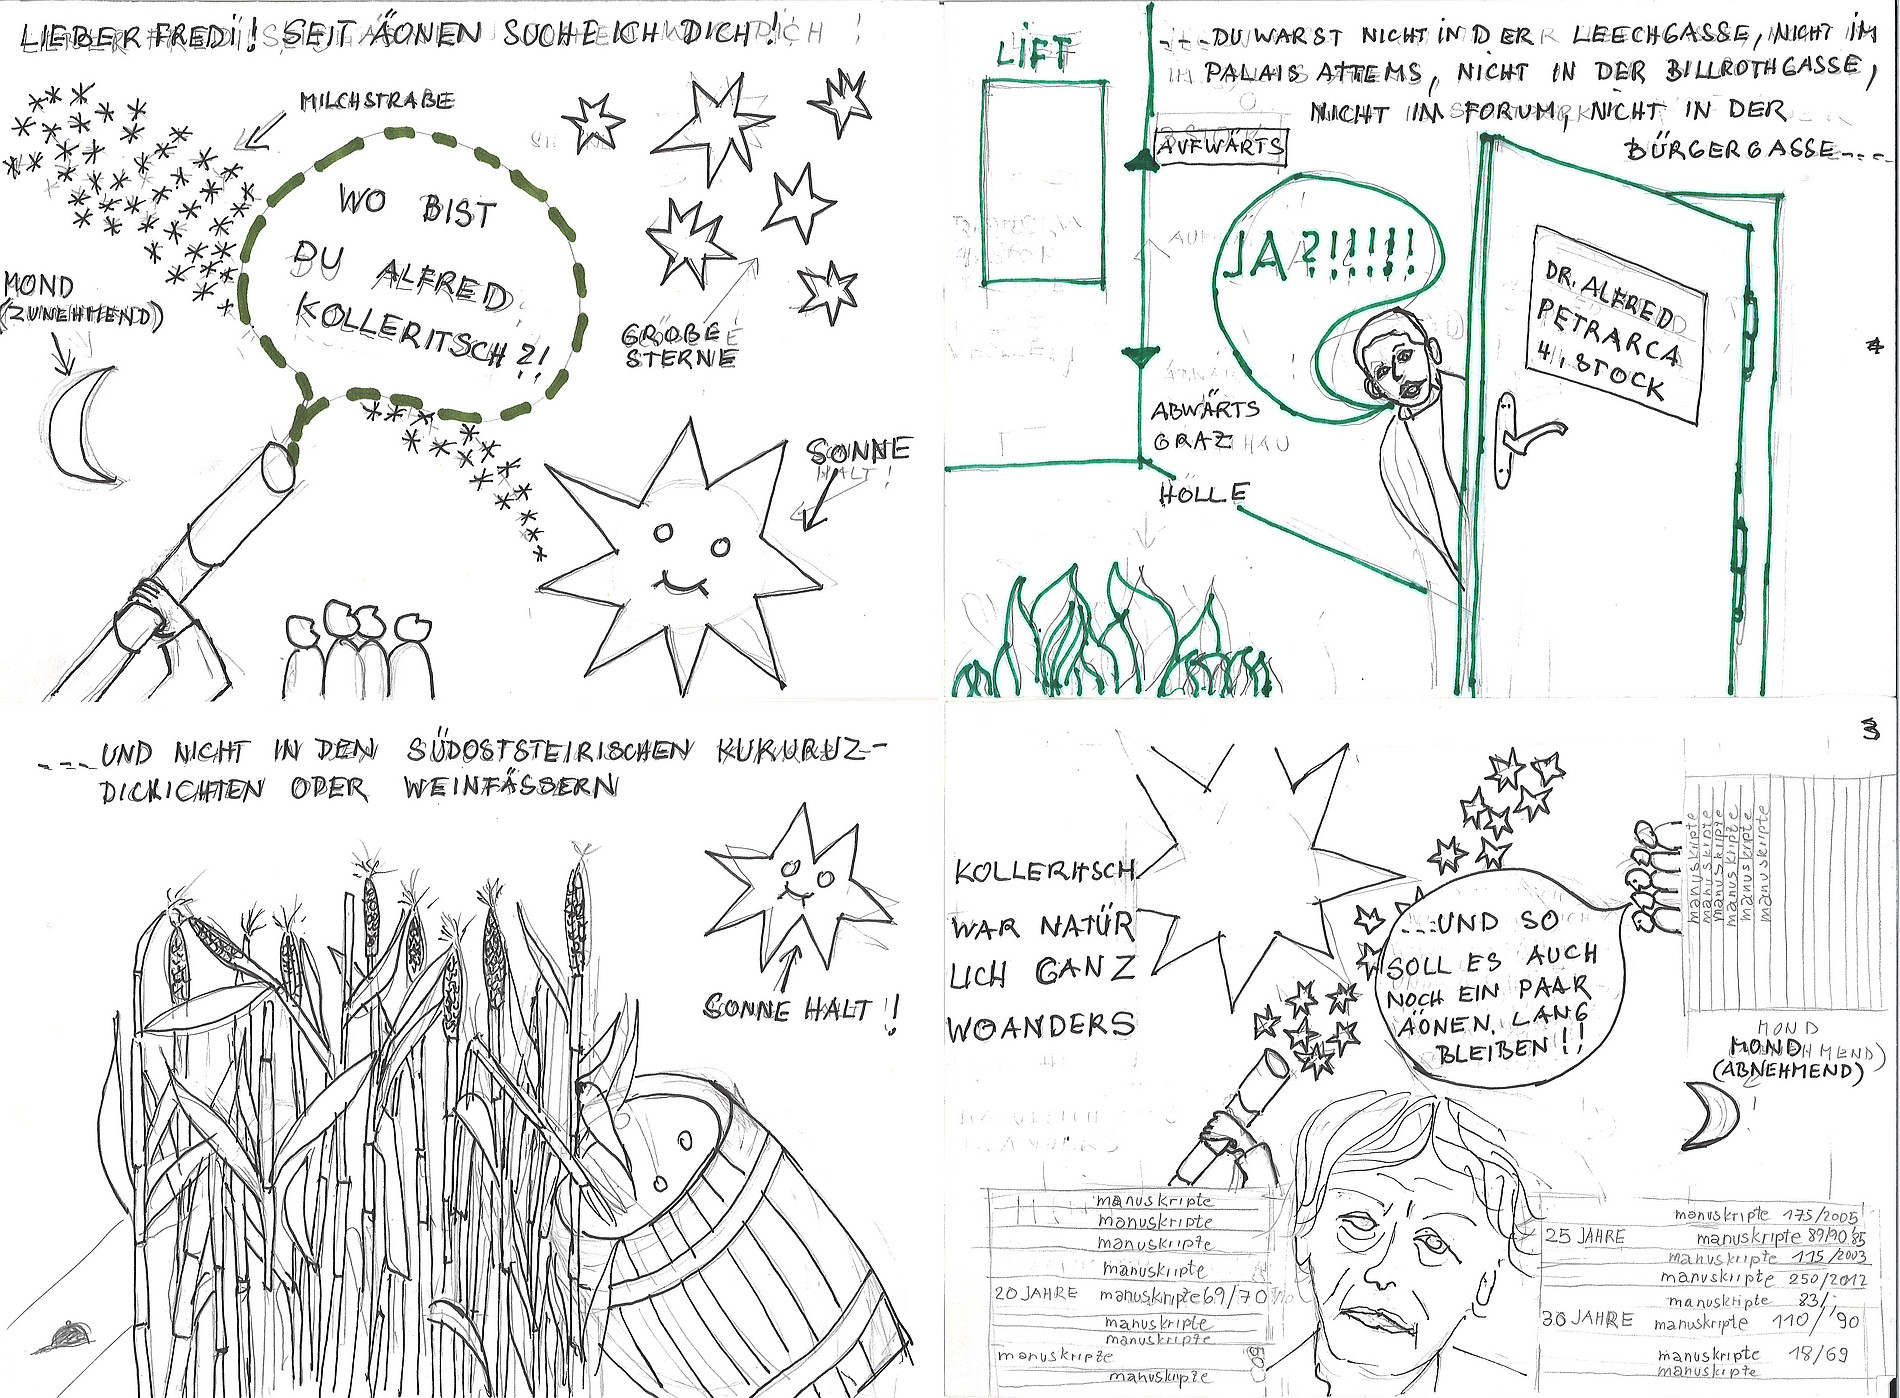 LIEBER FREDI! SEIT ÄONEN SUCHE ICH DICH!
MILCHSTRAßE
WO BIST
DU ALFRED
KOLLERITSCH?!
MOND
(ZUNEHMEND)
GROßE
STERNE
SONNE
LIFT
---DU WARST NICHT IN DER LEECHGASSE, NICHT IM
PALAIS ATTEMS, NICHT IN DER BILLROTHGASSE,
NICHT IM FORUM, NICHT IN DER
BÜRGERGASSE---
AUFWÄRTS
JA?!!!!!
DR. ALFRED
PETRARCA
4. STOCK
ABWÄRTS
GRAZ
HÖLLE
---UND NICHT IN DEN SÜDOSTSTEIRISCHEN KUKURUZ-
DICKICHTEN ODER WEINFÄSSERN
SONNE HALT!!
3
KOLLERITSCH
WAR NATÜR
LICH GANZ
WOANDERS
---UND SO
SOLL ES AUCH
NOCH EIN PAAR
ÄONEN LANG
BLEIBEN!!
manuskripte
manuskripte
manuskripte
manuskripte
manuskripte
manuskripte
MOND
(ABNEHMEND)
manuskripte
manuskripte
manuskripte
manuskripte
20 JAHRE manuskripte 69/70
manuskripte
manuskripte
manuskripte
manuskripte
manuskripte 175/2005
25 JAHRE manuskripte 89/90 85
manuskripte 115/2003
manuskripte 250/2012
manuskripte 83/
30 JAHRE manuskripte 110/'90
manuskripte 18/69
manuskripte